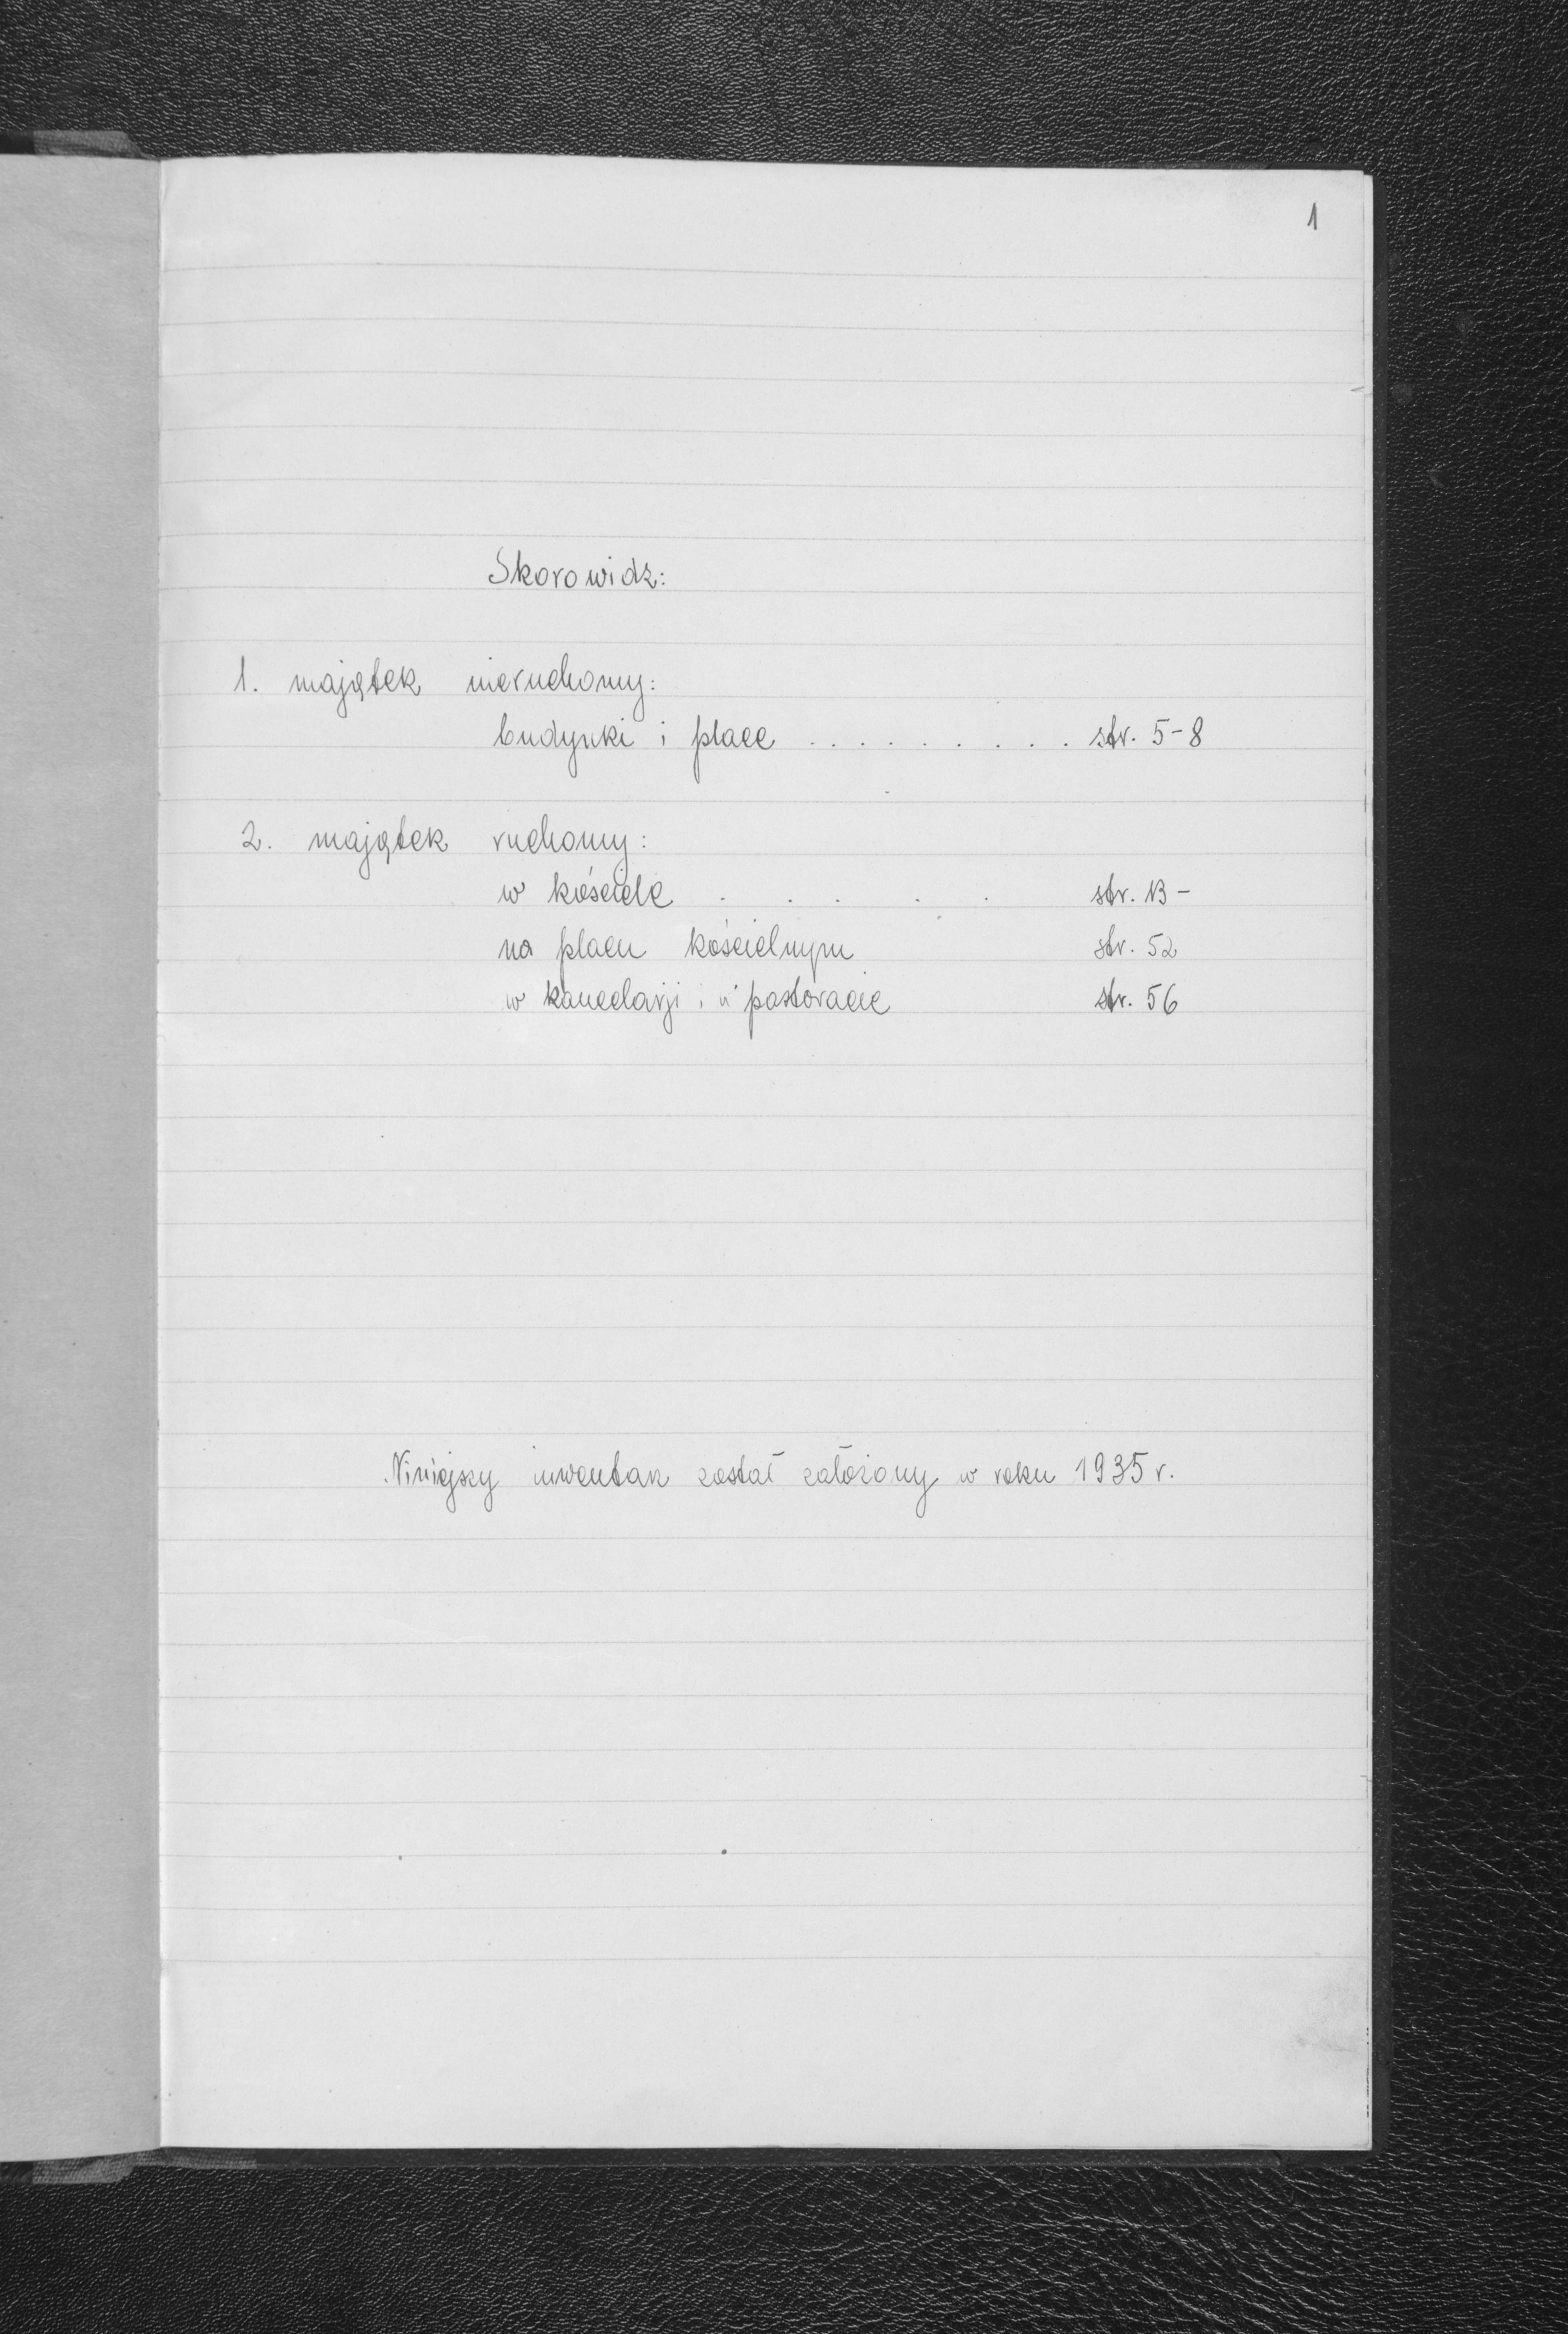 1
Skorowidz:
1. majątek nieruchomy:
budynki i place . . . . . . . . . . . str. 5-8
2. majątek ruchomy:
w kościele . . . . . str. 13 -
na placu kościelnym str. 52
w kancelarji i w pastoracie str. 56
Niniejszy inwentarz został założony w roku 1935 r.